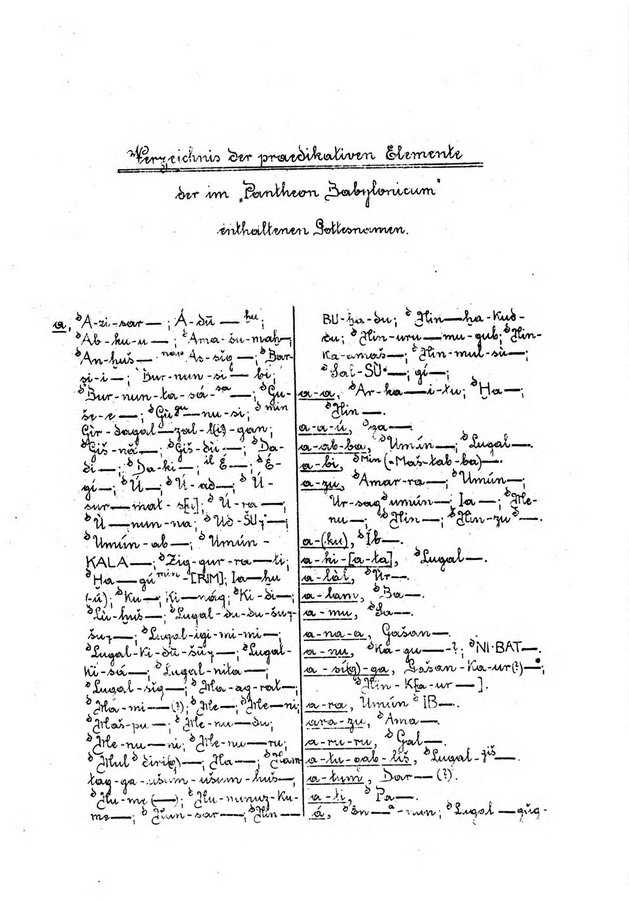 Verzeichnis der praedikativen Elemente
der im „Pantheon Babylonicum"
enthaltenen Gottesnamen.
a, ᵈA-zi-sar—; Á-dū—ḫu;
ᵈAb-ku-u—; ᵈAma-šu-maḫ—;
ᵈAn-ḫuš— As-sig—; ᵈBar-
si-i—; ᵈBur-nun-si—bi;
ᵈBur-nun-ta-sá-ˢᵃ—; ᵈGu-
še-e—; ᵈGùᵍᵘ—nu-si; ᵈᵐⁱⁿ
Gìr-dagal—zal-l(i)-gan;
ᵈGiš-nă—; ᵈGiš-dū—; ᵈDa-
di—; ᵈDa-ki—; É—; ᵈÉ-
gí—; ᵈÚ—; ᵈÚ-ad—; ᵈÚ-
sur—mat-s[i]; ᵈÚ-ra—;
ᵈÙ—nun-na; ᵈUd-ŠU₄—;
ᵈUmún-ab—; ᵈUmún-
KALA—; ᵈZig-gur-ra-ti;
ᵈḪa—gúᵐⁱⁿ-[RIM]; Ia—ḫu
(-ú); ᵈKu—; Ki—nág; ᵈKi-di—;
ᵈLù-ḫuš—; ᵈLugal-du-du-šu₄-
šu₄—; ᵈLugal-igi-mi-mi—;
ᵈLugal-Ki-dū-šu₄—; ᵈLugal-
Kù-sá—; ᵈLugal-nita—;
ᵈLugal-sig—; ᵈMa-ag-rat—;
ᵈMá-mi—(?); ᵈMe—; ᵈMe—ni;
ᵈMaš-pu—; ᵈMe-nu—du;
ᵈMe-nu—ni; ᵈMe-nu—ru;
ᵈMul diri(g)—; Na—; ᵈNam
tag-ga-ušum-ušum-ḫuš—;
ᵈNu-me(—); ᵈNu-nunuz-Ku-
me—; ᵈNun-sar—; ᵈNin—
BU-ḫa-du; ᵈNin—ḫa-Kud-
du; ᵈNin-uru—mu-gub; ᵈNin-
Ka—maš—; ᵈNin-mul-si—;
ᵈSal-SÙ—gí—;
a-a, ᵈAr-ka—i-tu; ᵈḪa—;
ᵈNin—.
a-a-ú, ᵈza—.
a-ab-ba, ᵈUmún—; ᵈLugal—.
a-bi, ᵈMin (=Maš-tab-ba)—.
a-zu, ᵈAmar-ra—; ᵈUmún—;
Ur-sag umún—; Ia—; ᵈMe-
nu—; ᵈNin—; ᵈNin-zu—.
a-(ku), ᵈÍb—.
a-ki-[a-ta], ᵈLugal—.
a-làl, ᵈUr—.
a-lam, ᵈBa—.
a-mu, ᵈSa—.
a-na-a, Gašan—.
a-nu, ᵈKa-gu—?; ᵈNI-BAT—.
a-si(g)-ga, Gašan-Ka-ur(?)—;
ᵈNin-K[a-ur—].
a-ra, Umún ᵈIB—.
ara-zu, ᵈAma—.
a-ru-ru, ᵈGal—.
a-tu-gab-liš, ᵈLugal-giš—.
a-tum, Dar—(?).
a-ti, ᵈPa—.
á, ᵈEn—ᵃ-nun; ᵈLugal—gūg-